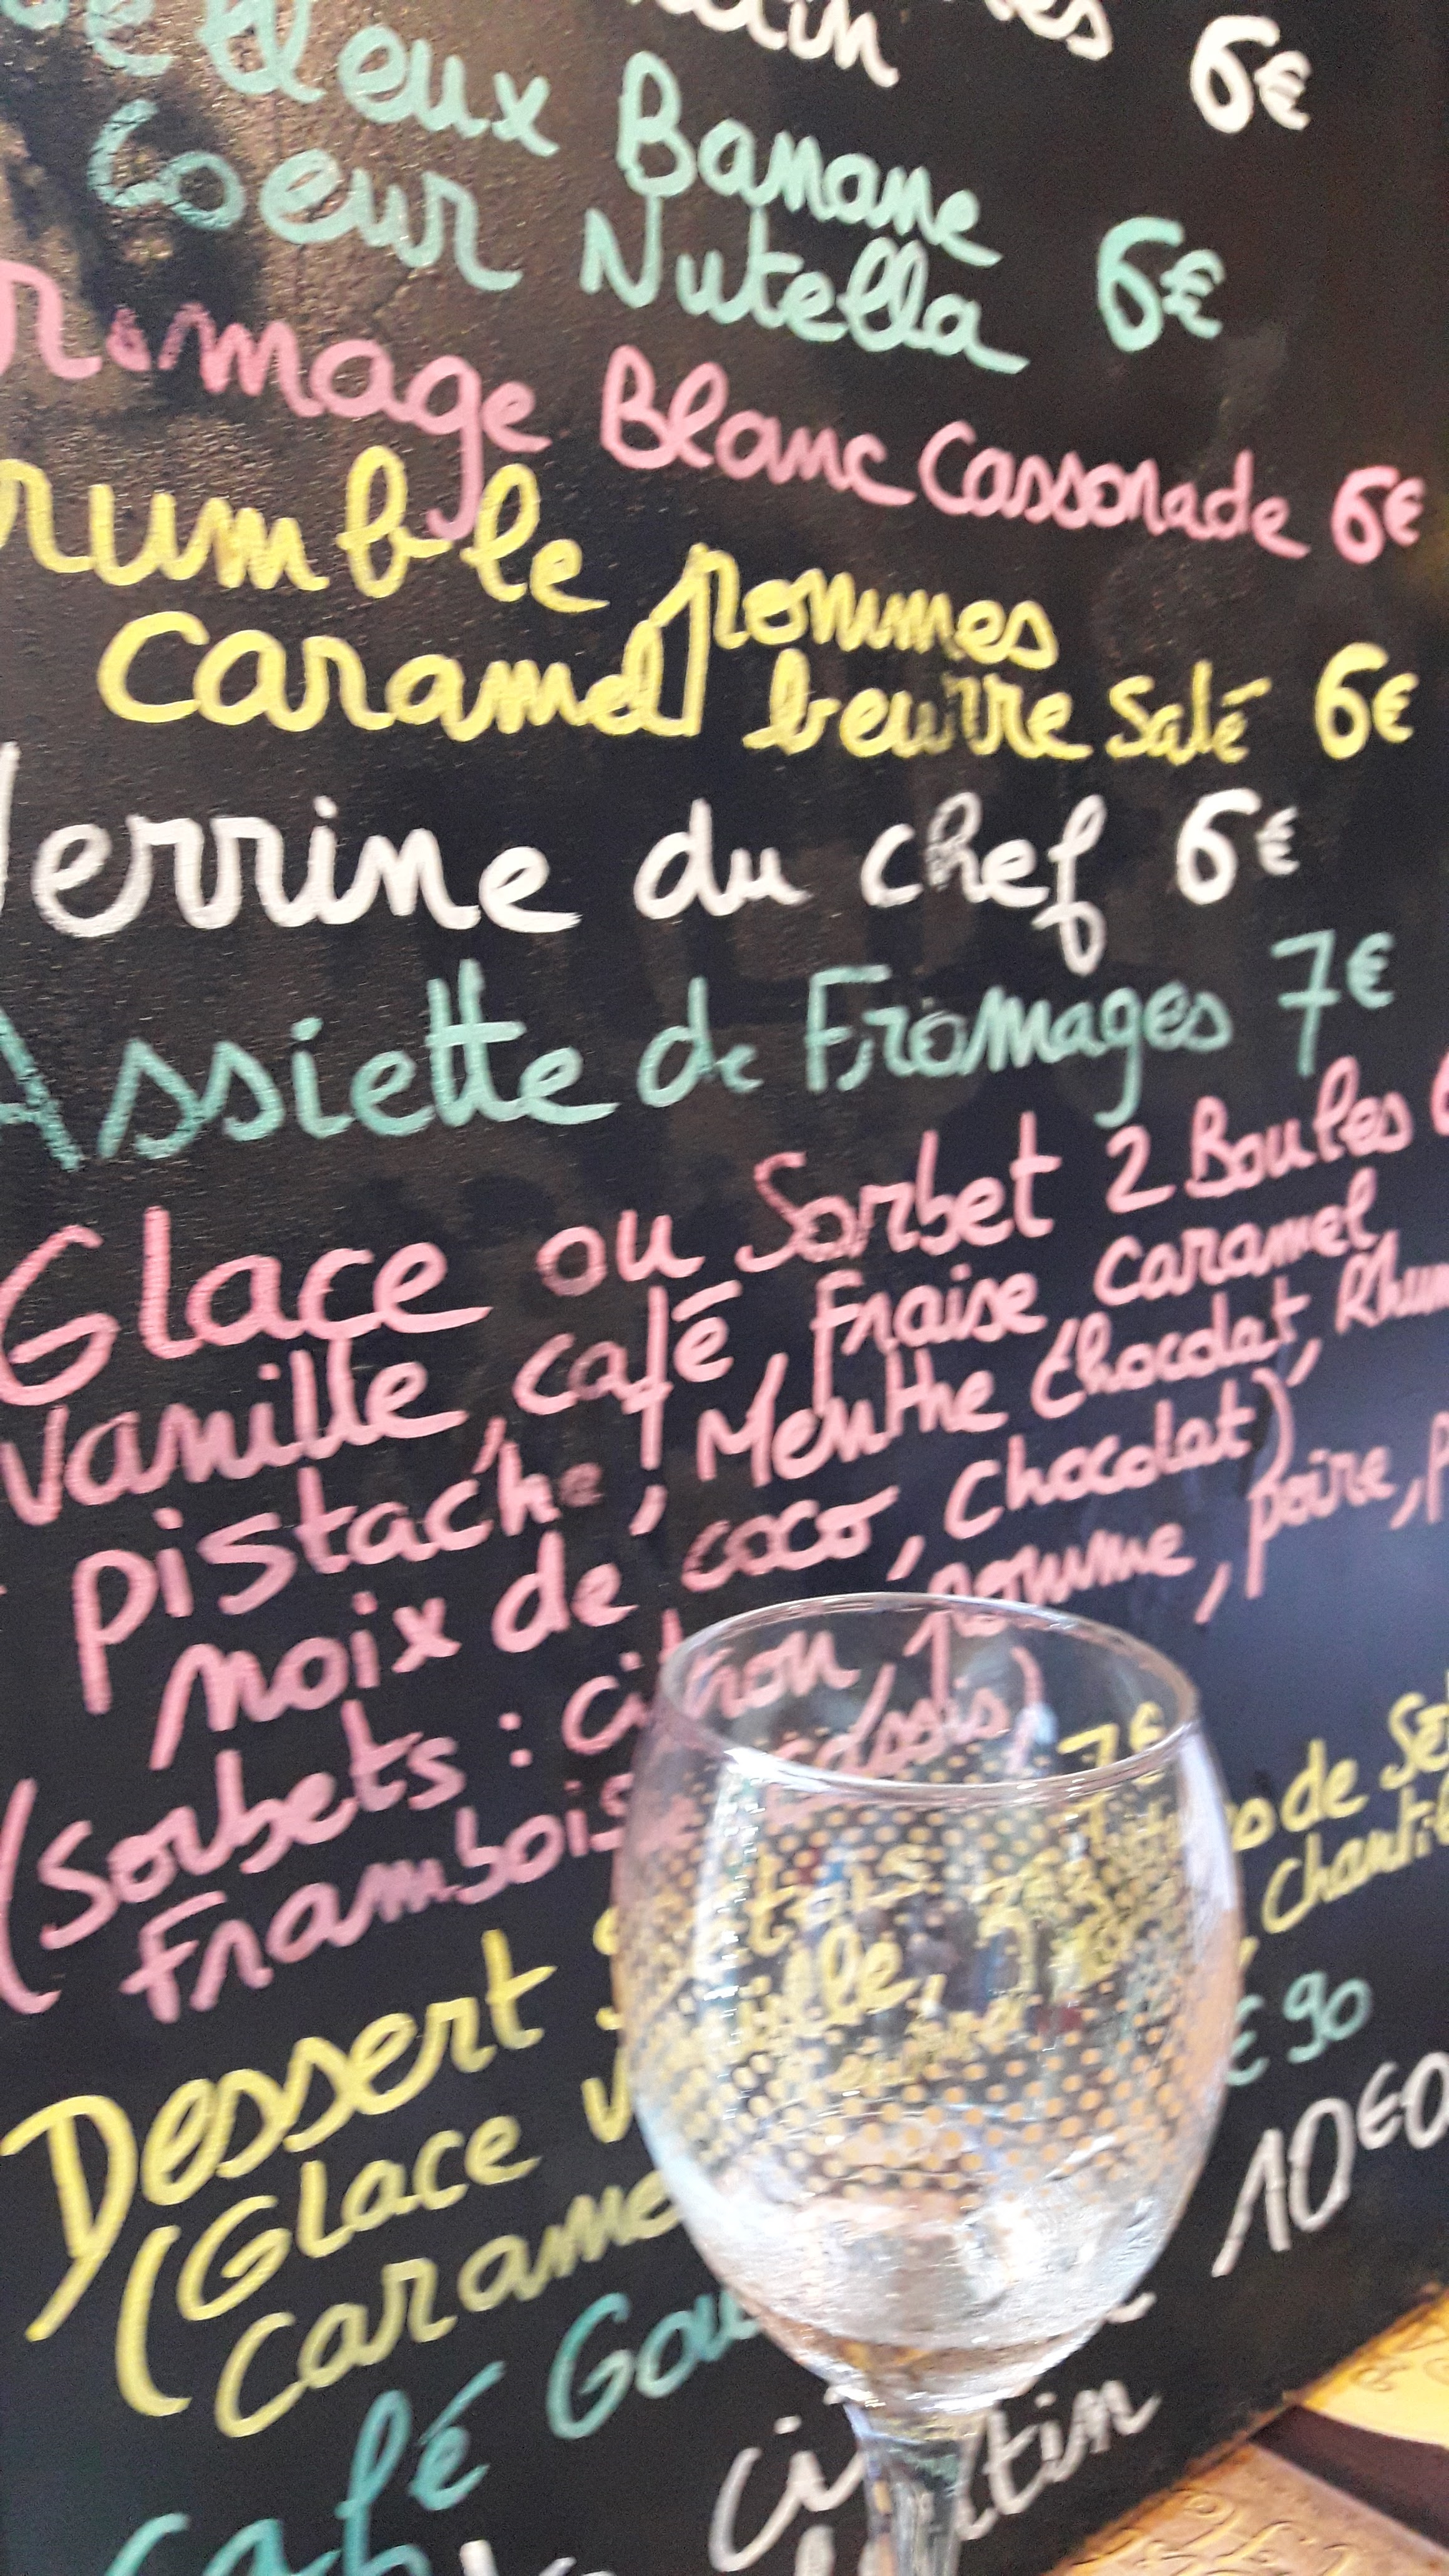 6€
Banane
Coeur Nutella 6€
mage Blanc Cassonade 6€
rumble pommes
caramel beurre salé 6€
Verrine du chef 6€
Assiette de Fromages 7€
Glace ou Sorbet 2 Boules
Vanille, café, Fraise caramel
pistache, Menthe chocolat, Rhum
noix de coco, chocolat)
(Sorbets : citron, pomme, poire, p
Framboise cassis)
Dessert 7€
(Glace de
Chantil
Carame
Café Gou €90
10€0